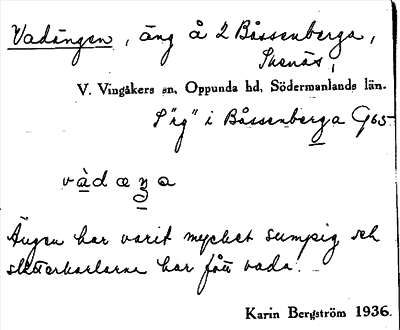 Vadängen, äng å 2 Båssenberga,
Skenäs,
V. Vingåkers sn, Oppunda hd, Södermanlands län.
i Båssenberga G65
vàdæŋa
Ängen har varit mycket sumpig och
slåtterkarlarna har fått vada.
Karin Bergström 1936.